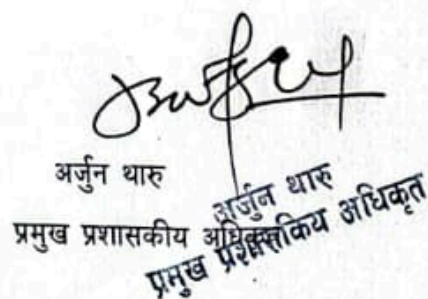 अर्जुन थारु
प्रमुख प्रशासकीय अधिकृत
अर्जुन थारु
प्रमुख प्रशासकिय अधिकृत